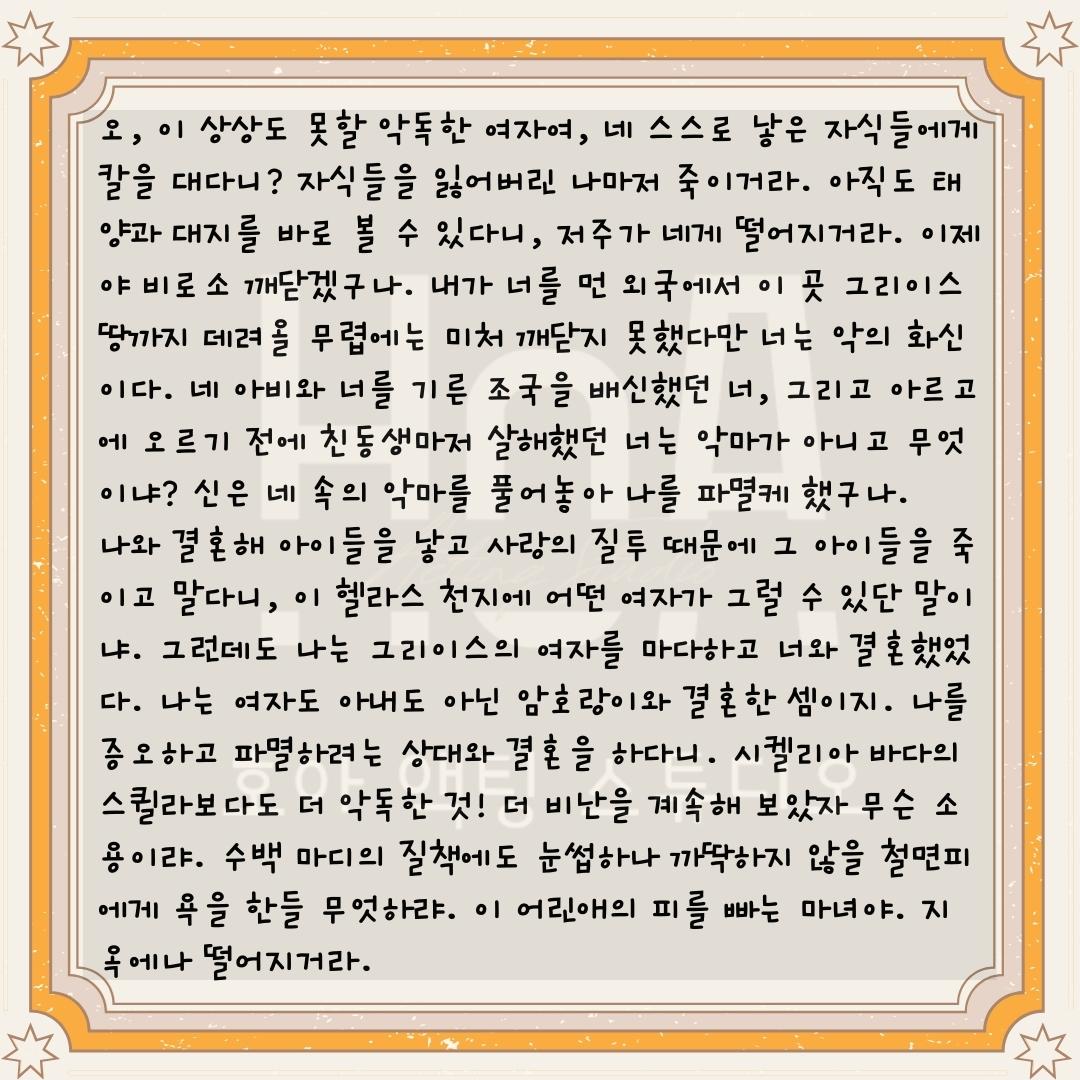 오, 이 상상도 못할 악독한 여자여, 네 스스로 낳은 자식들에게
칼을 대다니? 자식들을 잃어버린 나마저 죽이거라. 아직도 태
양과 대지를 바로 볼 수 있다니, 저주가 네게 떨어지거라. 이제
야 비로소 깨닫겠구나. 내가 너를 먼 외국에서 이 곳 그리이스
땅까지 데려올 무렵에는 미처 깨닫지 못했다만 너는 악의 화신
이다. 네 아비와 너를 기른 조국을 배신했던 너, 그리고 아르고
에 오르기 전에 친동생마저 살해했던 너는 악마가 아니고 무엇
이냐? 신은 네 속의 악마를 풀어놓아 나를 파멸케 했구나.
나와 결혼해 아이들을 낳고 사랑의 질투 때문에 그 아이들을 죽
이고 말다니, 이 헬라스 천지에 어떤 여자가 그럴 수 있단 말이
냐. 그런데도 나는 그리이스의 여자를 마다하고 너와 결혼했었
다. 나는 여자도 아내도 아닌 암호랑이와 결혼한 셈이지. 나를
증오하고 파멸하려는 상대와 결혼을 하다니. 시켈리아 바다의
스퀼라보다도 더 악독한 것! 더 비난을 계속해 보았자 무슨 소
용이랴. 수백 마디의 질책에도 눈썹하나 까딱하지 않을 철면피
에게 욕을 한들 무엇하랴. 이 어린애의 피를 빠는 마녀야. 지
옥에나 떨어지거라.
HoA
Acting Studio
호아 액팅 스튜디오